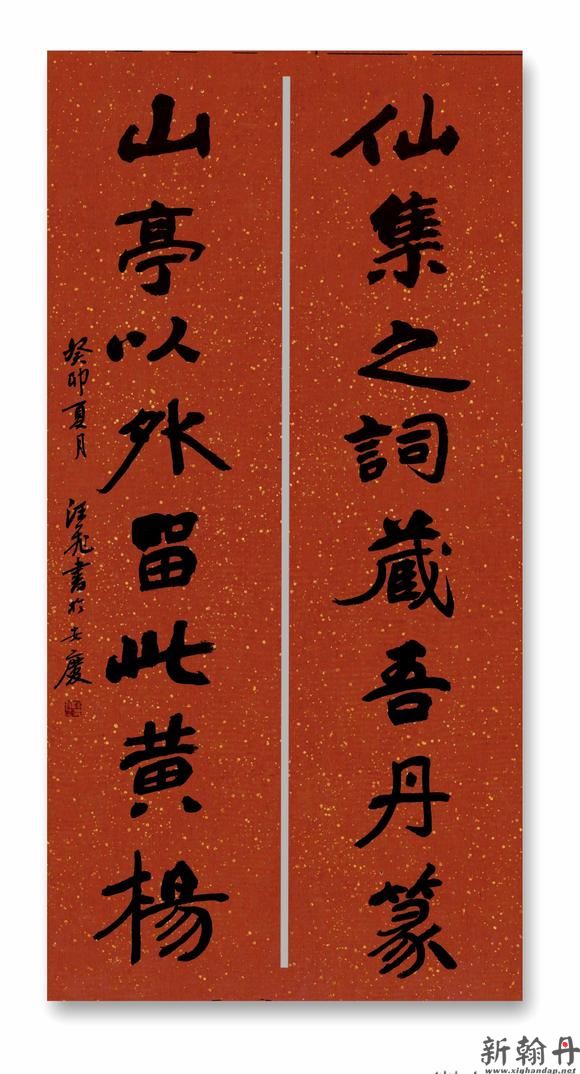 仙集之詞藏吾丹篆
山亭以外留此黄楊
癸卯夏月 汪飛書於安慶
新翰丹
www.xighandap.net